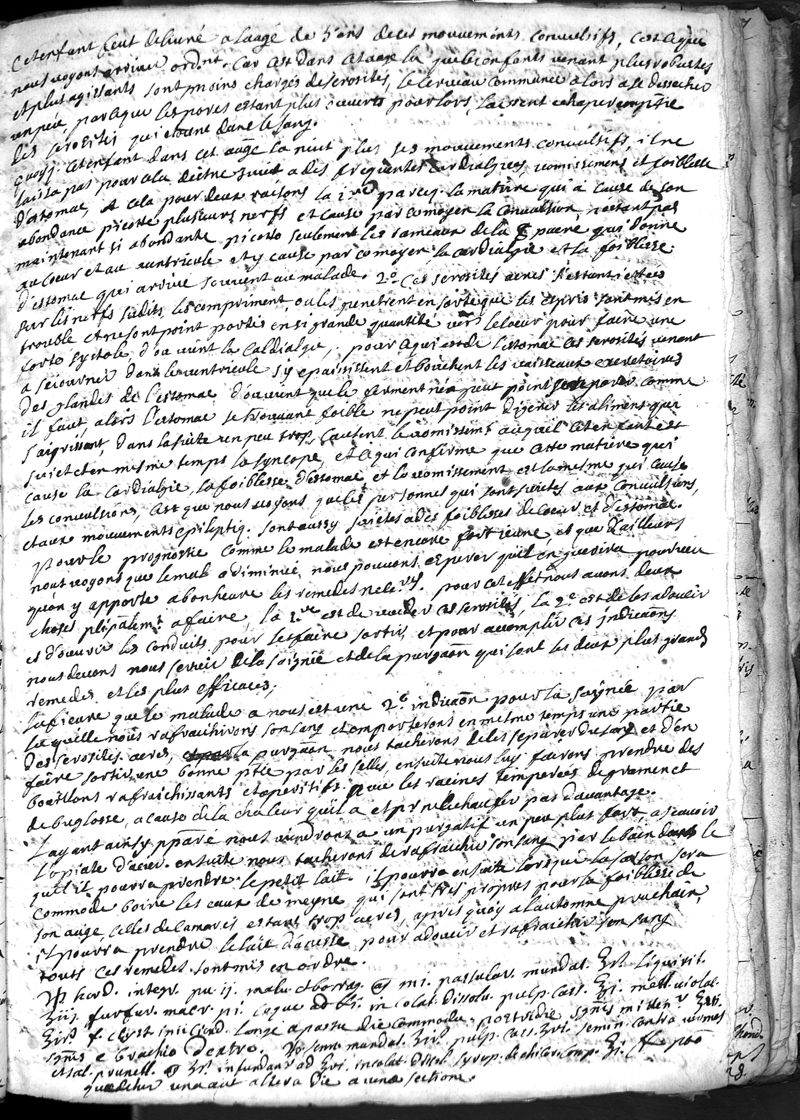 Cet enfant feut delivré a laage de 5 ans de ces mouvements convulsifs, c'est a que
nous voyons arriver ordnt. car c'est dans cet aage la que les enfants venant plus robustes
et plus agissants sont moins chargés de serosités, le cerveau commence alors a se dessecher
un peu, parceque les pores estant plus ouverts pour lors, laissent echaper
les serosités qui dans le sang.
quoyq. cet enfant dans cet aage la n'eut plus ses mouvements convulsifs, il ne
laissa pas pour cela d'estre suiet a des frequentes cardialgies, vomissemens et foiblesse
d'estomac, et cela pour deux raisons la 1re parceq. la matiere qui a cause de son
abondance picotte plusieurs nerfs et cause par ce moyen la convulsion, n'estant pas
maintenant si abondante picotte seulement les rameaux de la 8 paere qui donne
au coeur et au ventricule et y cause par ce moyen la cardialgie et la foiblesse
d'estomac qui arrive souvent au malade. 2° Ces serosités acres s'estant iettées
sur les nerfs susdits, les compriment, ou les penetrent en sorte que les esprits sont mis en
trouble et ne sont point portés en si grande quantité vers le coeur pour faire une
forte systole, d'ou vient la cardialgie, pour a qui est de l'estomac ces serosités venant
a seiourner dans le ventricule s'y epaississent et bouchent les vaisseaux excretoires
des glandes de l'estomac d'ou vient que le ferment n'en peut point sortir comme
il faut alors l'estomac se trouvant foible ne peut point digerer les aliments qui
s'aigrissant, dans la suite un peu trop, causent le vomissemt auquel cet enfant est
suiet et en mesme temps la syncope, et a qui confirme que cette matiere qui
cause la cardialgie, la foiblesse d'estomac et le vomissement est la mesme qui cause
les convulsions, c'est que nous voyons que les personnes qui sont suietes aux convulsions,
et aux mouvements epileptiq. sont aussy suietes a des foiblesses de coeur et d'estomac.
Pour le prognostic comme le malade est encore fort ieune et que d'ailleurs
nous voyons que le mal a diminué, nous pouvons esperer qu'il en guerira pourveu
qu'on y apporte a bonheure les remedes necesres. pour cet effet nous avons deux
choses a faire, la 1re est de vuider ces serosités, la 2e est de les adoucir
et d'ouvrir les conduits pour les faire sortir, et pour accomplir ces indicaons
nous devons nous servir de la saignée et de la purgaon qui sont les deux plus grands
remedes et les plus efficaces;
la fievre que le malade a nous est une 2e indicaon pour la saignée par
laquelle nous rafraichirons son sang et emporterons en mesme temps une partie
des serosités acres, la purgaon nous tacherons de les separer du sang et d'en
faire sortir une bonne ptie par les selles, ensuite nous luy fairons prendre des
bouillons rafraichissants et aperitifs avec les racines temperées de gramen et
de buglosse, a cause de la chaleur qu'il a et pr ne l'echaufer pas d'avantage.
L'ayant ainsy pparé nous viendrons a un purgatif un peu plus fort a scavoir
l'opiate d'acier. ensuite nous tacherons de rafraichir son sang par le bain dont le
quel il pourra prendre le petit lait. il pourra ensuite lorsque la saison sera
commode boire les eaux de meyne qui sont tres propres pour la foiblesse de
son aage celles de Camarés estant trop acres, apres quoy a l'automne prochain,
il pourra prendre le lait d'anesse pour adoucir et rafraichir son sang
touts ces remedes sont mis en ordre.
hord. integr. pu ij. malv. et borrag. mi. passular. mundat. ℥ß. liquirit.
ʒiij furfur. macr. pi. coque ad in colat. dissolu. pulp. cass. ℥i. mell. violat.
f. clyst. iniiciend. longe a pastu die commoda, postridie sgnis mittenr
sgnis e brachio dextro. senn. mundat. pulp. cass. semin. contra vermes
et sal. prunell. infundanr ad in colat. dissol. syrup. de chicor. comp. ℥i. f. po
una aut altera die a venae sectione.